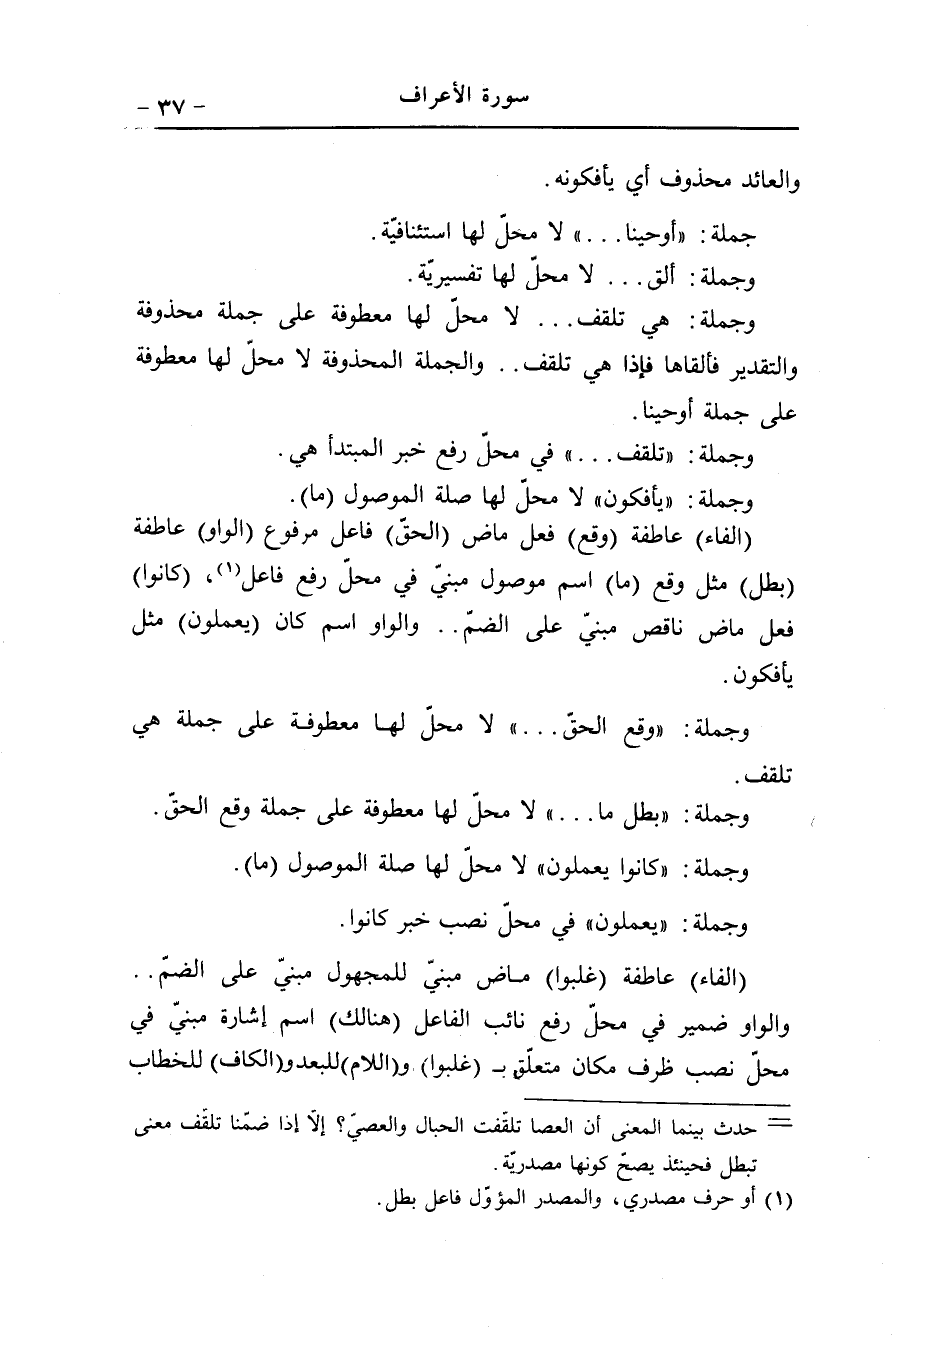 سورة الأعراف
- ٣٧ -
والعائد محذوف أي يأفكونه.
جملة: «أوحينا...» لا محلّ لها استئنافيّة.
وجملة: ألق... لا محلّ لها تفسيريّة.
وجملة: هي تلقف... لا محلّ لها معطوفة على جملة محذوفة
والتقدير فألقاها فإذا هي تلقف.. والجملة المحذوفة لا محلّ لها معطوفة
على جملة أوحينا.
وجملة: «تلقف...» في محلّ رفع خبر المبتدأ هي.
وجملة: «يأفكون» لا محلّ لها صلة الموصول (ما).
(الفاء) عاطفة (وقع) فعل ماض (الحقّ) فاعل مرفوع (الواو) عاطفة
(بطل) مثل وقع (ما) اسم موصول مبنيّ في محلّ رفع فاعل(١)، (كانوا)
فعل ماض ناقص مبنيّ على الضمّ.. والواو اسم كان (يعملون) مثل
يأفكون.
وجملة: «وقع الحقّ...» لا محلّ لها معطوفة على جملة هي
تلقف.
وجملة: «بطل ما...» لا محلّ لها معطوفة على جملة وقع الحقّ.
وجملة: «كانوا يعملون» لا محلّ لها صلة الموصول (ما).
وجملة: «يعملون» في محلّ نصب خبر كانوا.
(الفاء) عاطفة (غلبوا) ماض مبنيّ للمجهول مبنيّ على الضمّ..
والواو ضمير في محلّ رفع نائب الفاعل (هنالك) اسم إشارة مبنيّ في
محلّ نصب ظرف مكان متعلّق بـ (غلبوا) و(اللام)للبعد و(الكاف) للخطاب
= حدث بينما المعنى أن العصا تلقّفت الحبال والعصيّ؟ إلاّ إذا ضمّنا تلقّف معنى
تبطل فحينئذ يصحّ كونها مصدريّة.
(١) أو حرف مصدري، والمصدر المؤوّل فاعل بطل.